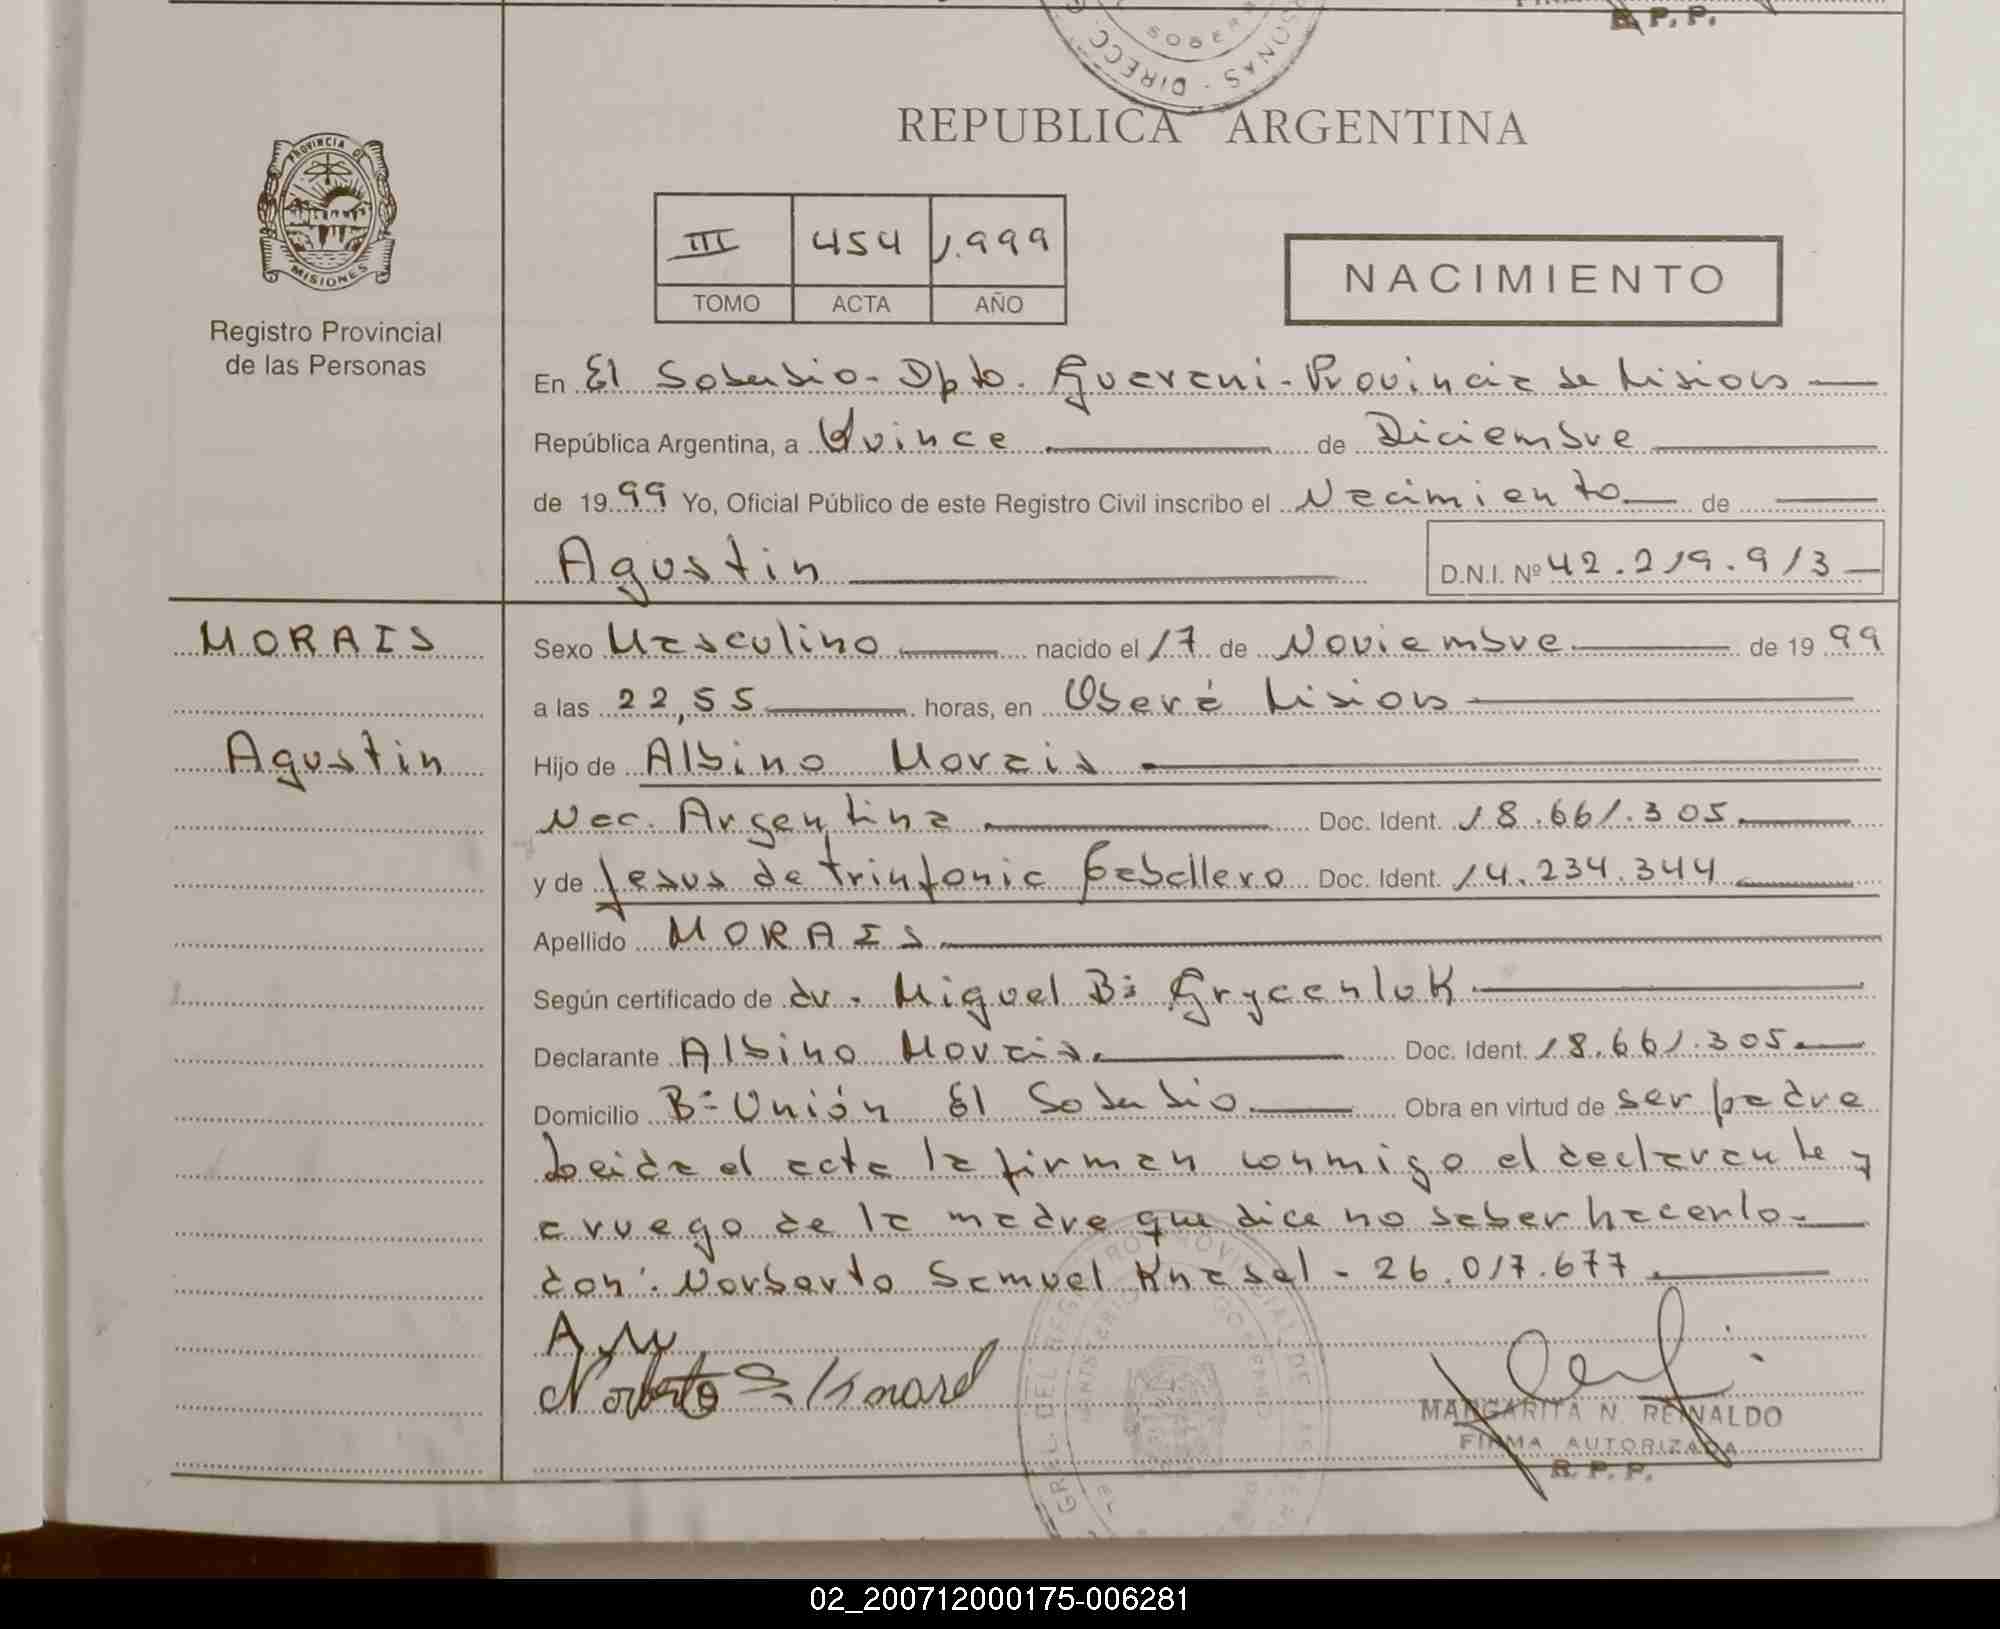 SOBER
ONAS · DIRECC
R. P. P.
REPUBLICA ARGENTINA
PROVINCIA DE
MISIONES
III 454 1.999
TOMO ACTA AÑO
NACIMIENTO
Registro Provincial
de las Personas
En El Soberbio - Dpto. Guarani - Provincia de Misiones
República Argentina, a Quince de Diciembre
de 1999 Yo, Oficial Público de este Registro Civil inscribo el Nacimiento de
Agustin D.N.I. Nº 42.219.913
MORAIS Sexo Masculino nacido el 17 de Noviembre de 1999
a las 22,55 horas, en Oberá Misiones
Agustin Hijo de Albino Morais
Nac. Argentina Doc. Ident. 18.661.305
y de Jesus de Caballero Doc. Ident. 14.234.344
Apellido MORAIS
Según certificado de dr. Miguel
Declarante Albino Morais. Doc. Ident. 18.661.305
Domicilio Bº Unión El Soberbio Obra en virtud de ser padre
Leida el acta la firman conmigo el declarante y
a ruego de la madre que dice no saber hacerlo
don: Norberto Samuel Knasel - 26.017.677
A M
Norberto S. Knasel
MARGARITA N. REINALDO
FIRMA AUTORIZADA
R. P. P.
GRAL. DEL REGISTRO PROVINCIAL DE
MINISTERIO GOBIERNO
02_200712000175-006281